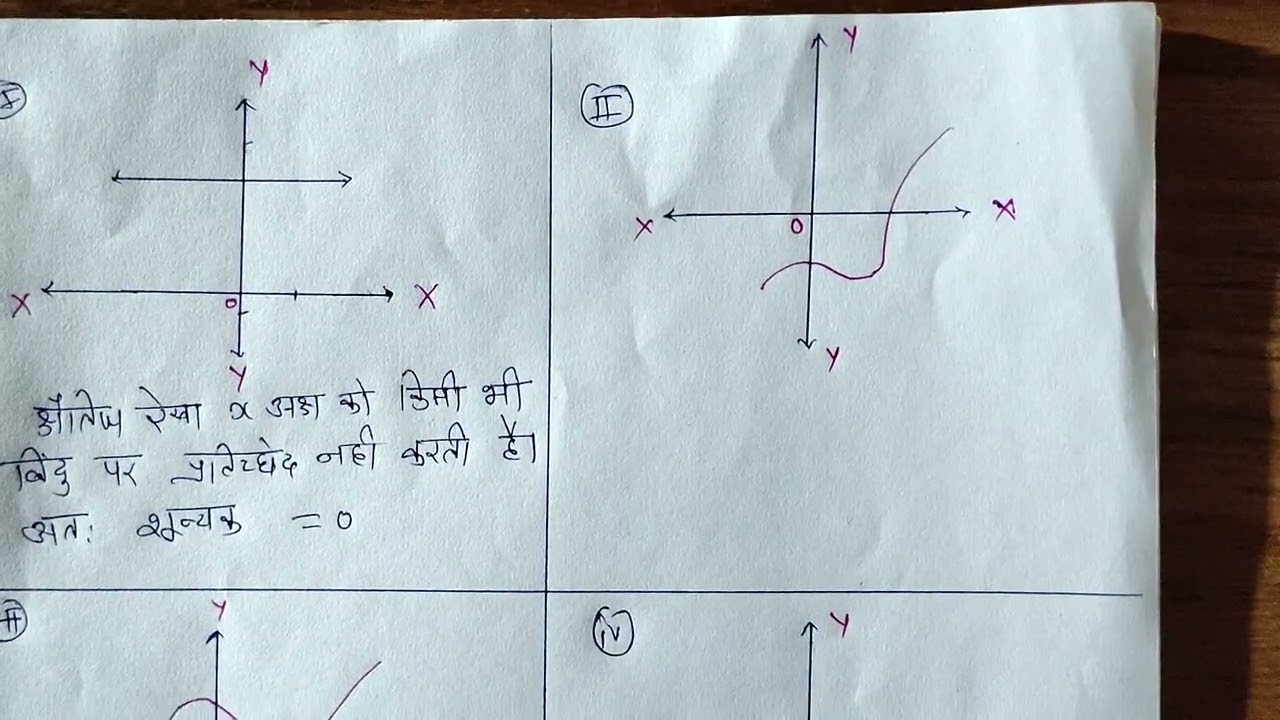 I
Y
X
O
X
Y
क्षैतिज रेखा x अक्ष को किसी भी
बिंदु पर प्रतिच्छेद नही करती है।
अतः शून्यक = 0
II
Y
X
O
X
Y
Y
IV
Y